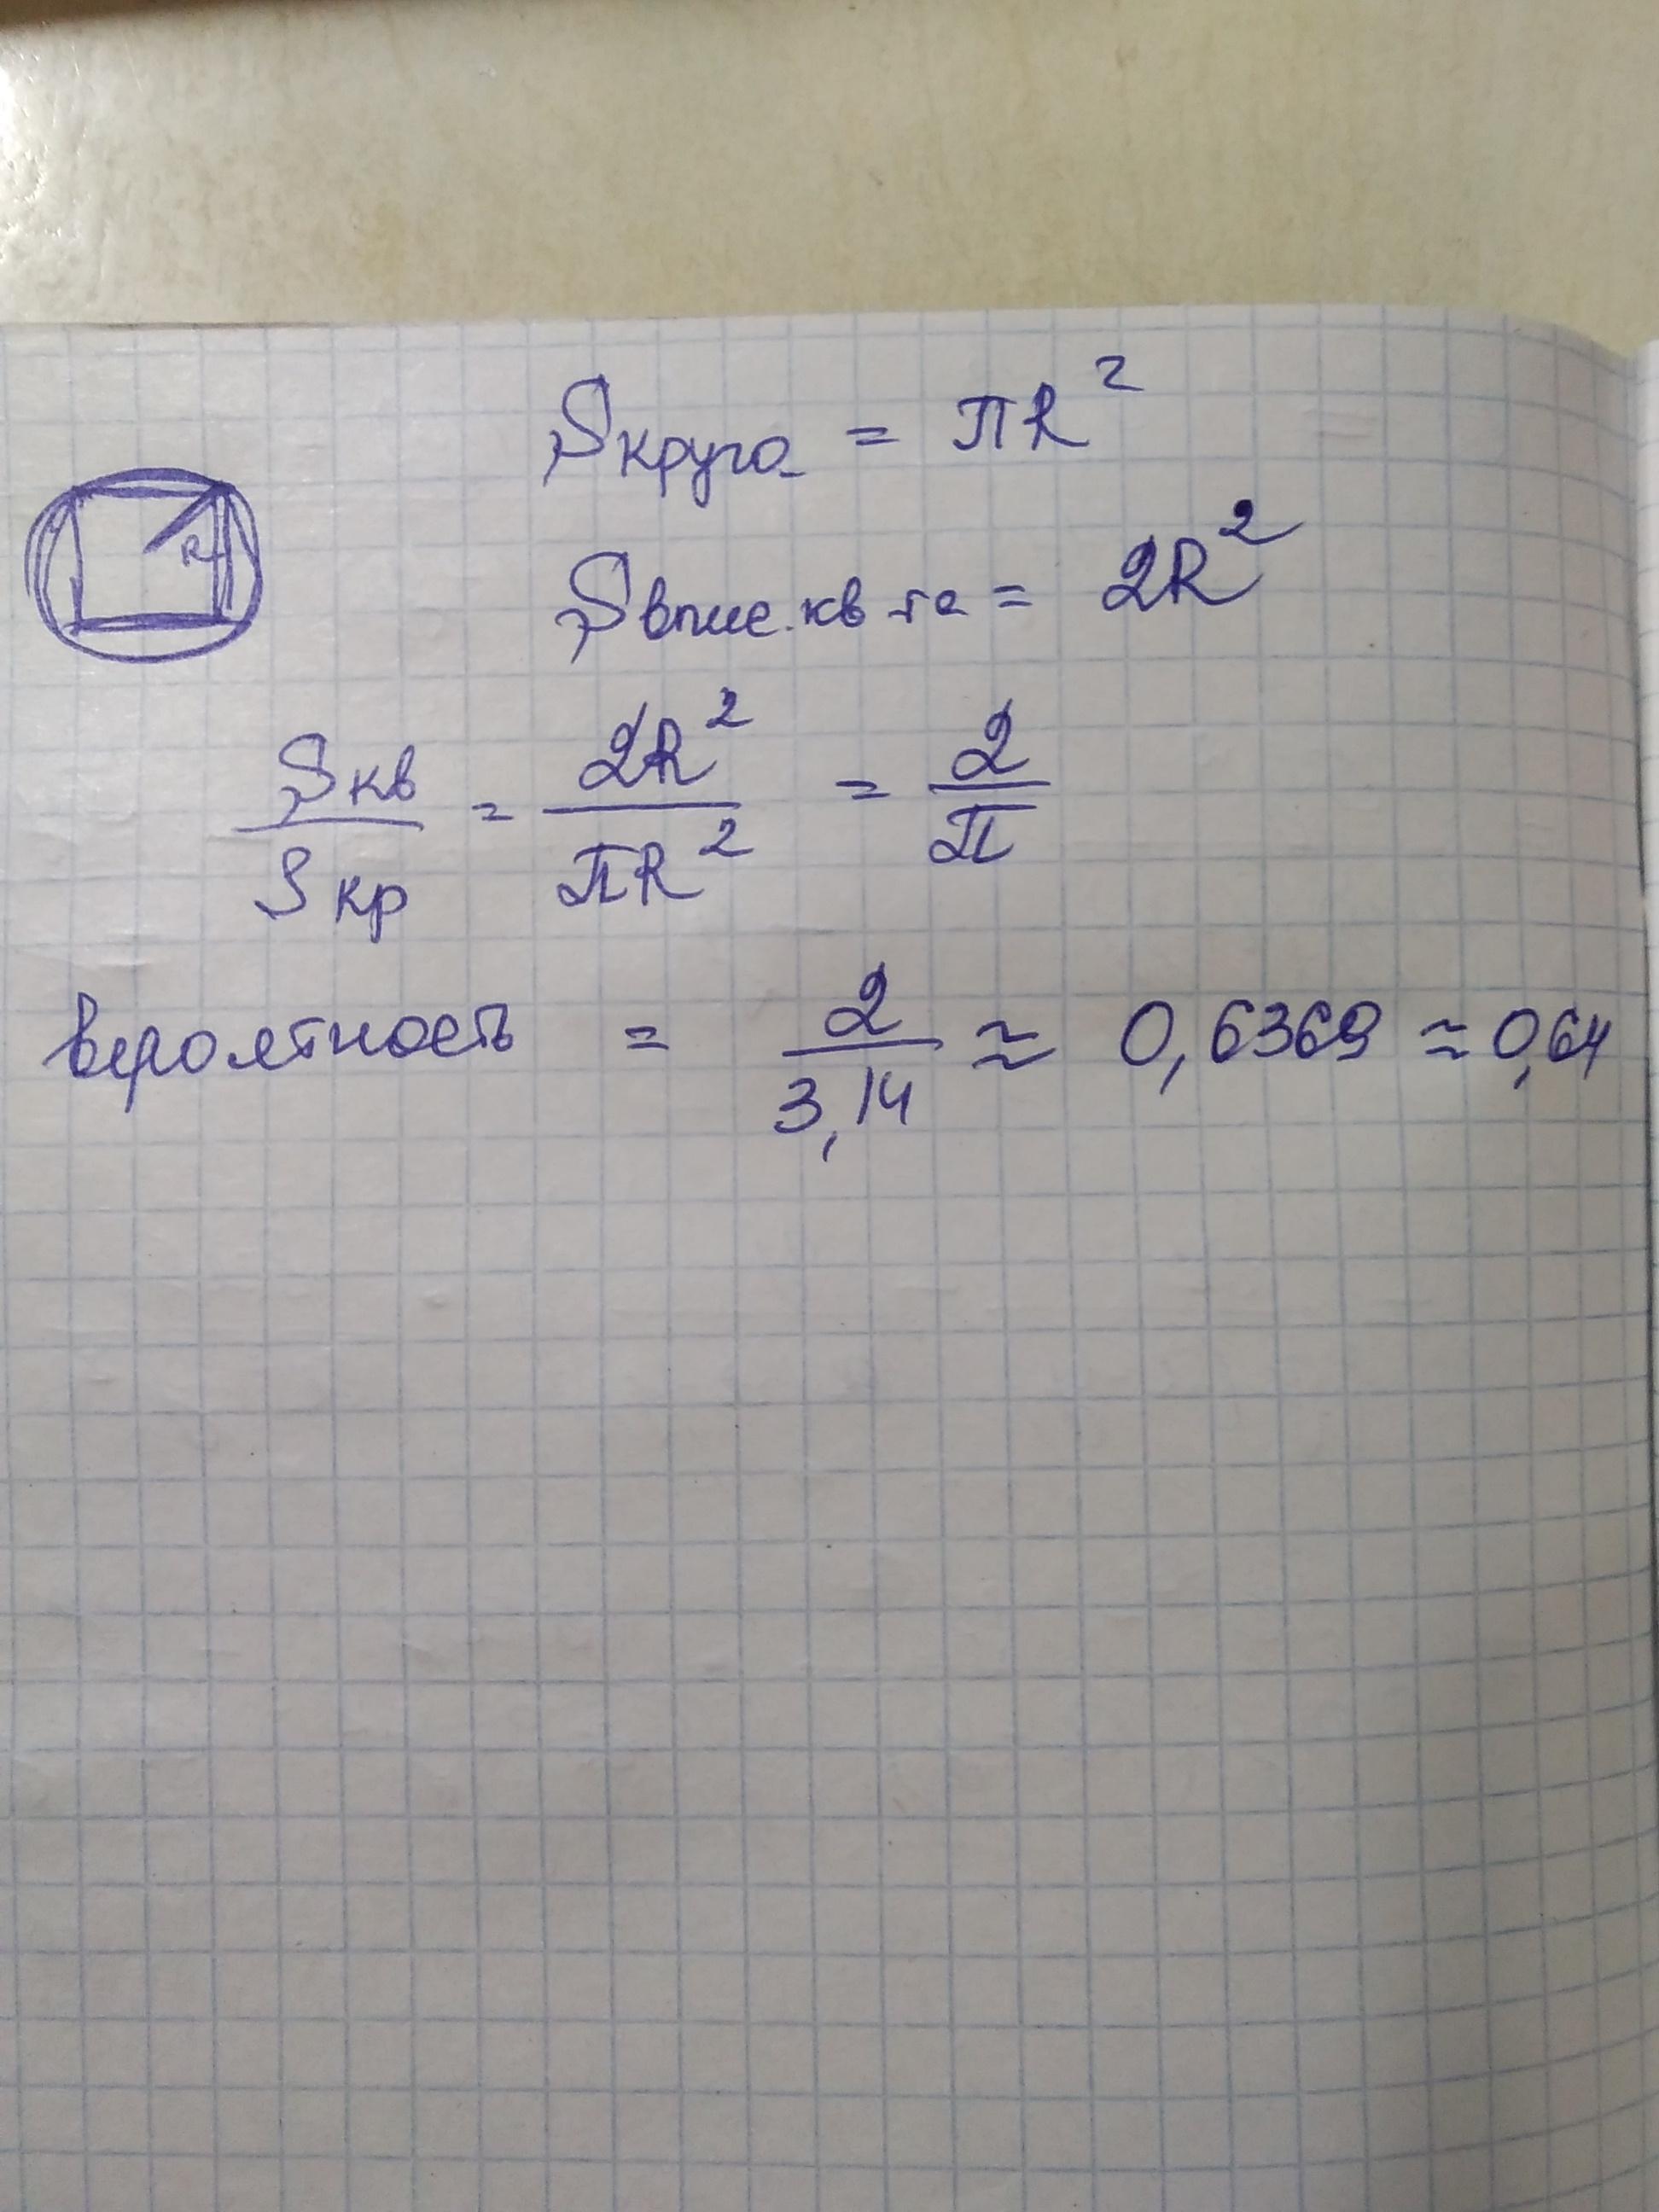 Sкруга = πR²
R
Sвпис.кв-та = 2R²
Sкв/Sкр = 2R²/πR² = 2/π
вероятность = 2/3,14 ≈ 0,6369 ≈ 0,64